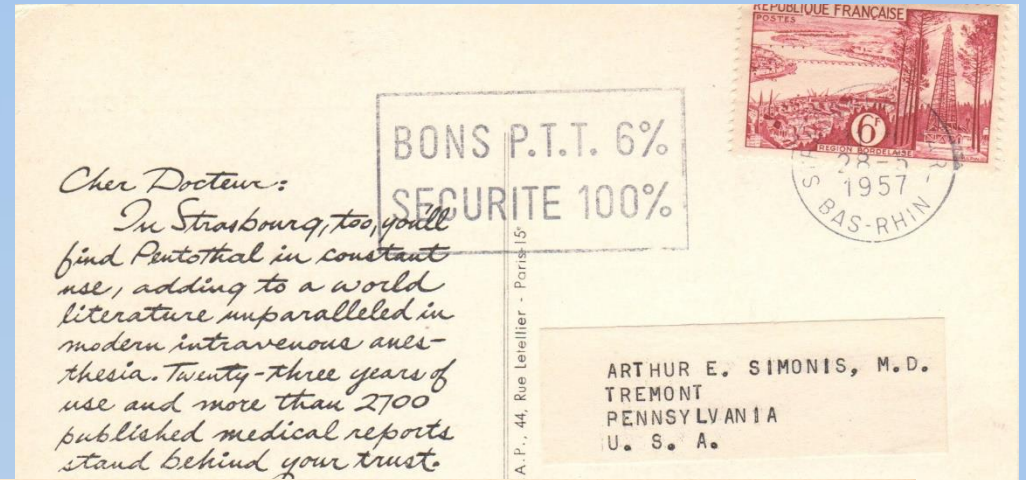 REPUBLIQUE FRANÇAISE
POSTES
6F
REGION BORDELAISE
BONS P.T.T. 6%
SECURITE 100%
28-5
1957
BAS-RHIN
Cher Docteur:
In Strasbourg, too, you'll
find Pentothal in constant
use, adding to a world
literature unparalleled in
modern intravenous anes-
thesia. Twenty-three years of
use and more than 2700
published medical reports
stand behind your trust.
A.P., 44, Rue Letellier - Paris-15e
ARTHUR E. SIMONIS, M.D.
TREMONT
PENNSYLVANIA
U. S. A.